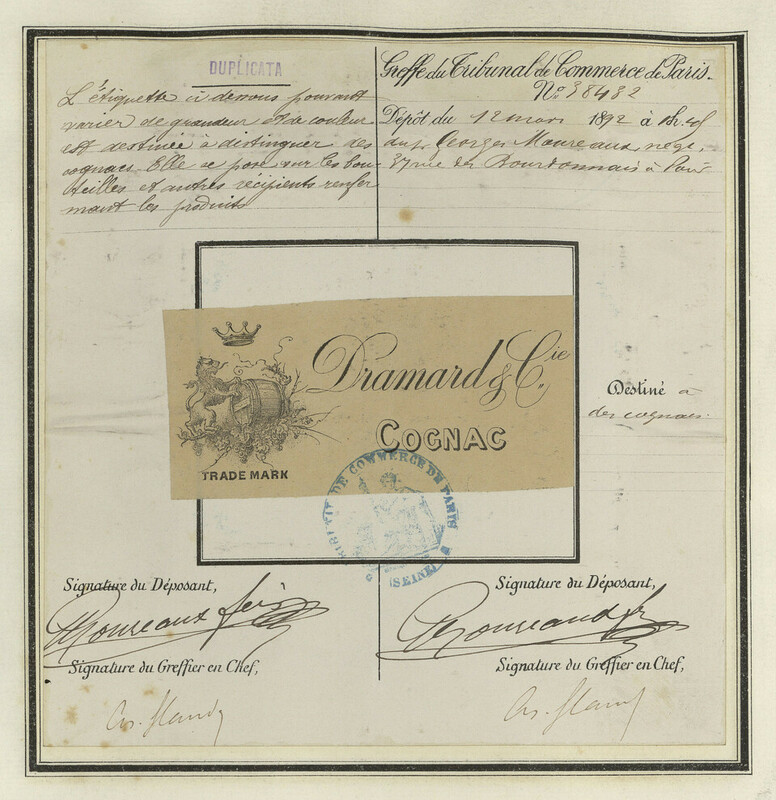 DUPLICATA
L'étiquette ci dessous pouvant
varier de grandeur et de couleur
est destinée à distinguer des
cognacs. Elle se pose sur les bou-
teilles et autres récipients renfer
mant les produits
Greffe du Tribunal de Commerce de Paris.
No 38432
Dépôt du 12 mars 1892 à 1h.45
Georges Moureaux, négt,
37 rue des Bourdonnais à Paris
Dramard & Cie
COGNAC
TRADE MARK
Destiné à
des cognacs.
TRIBUNAL DE COMMERCE DE PARIS
(SEINE)
Signature du Déposant,
Signature du Déposant,
Signature du Greffier en Chef,
Signature du Greffier en Chef,